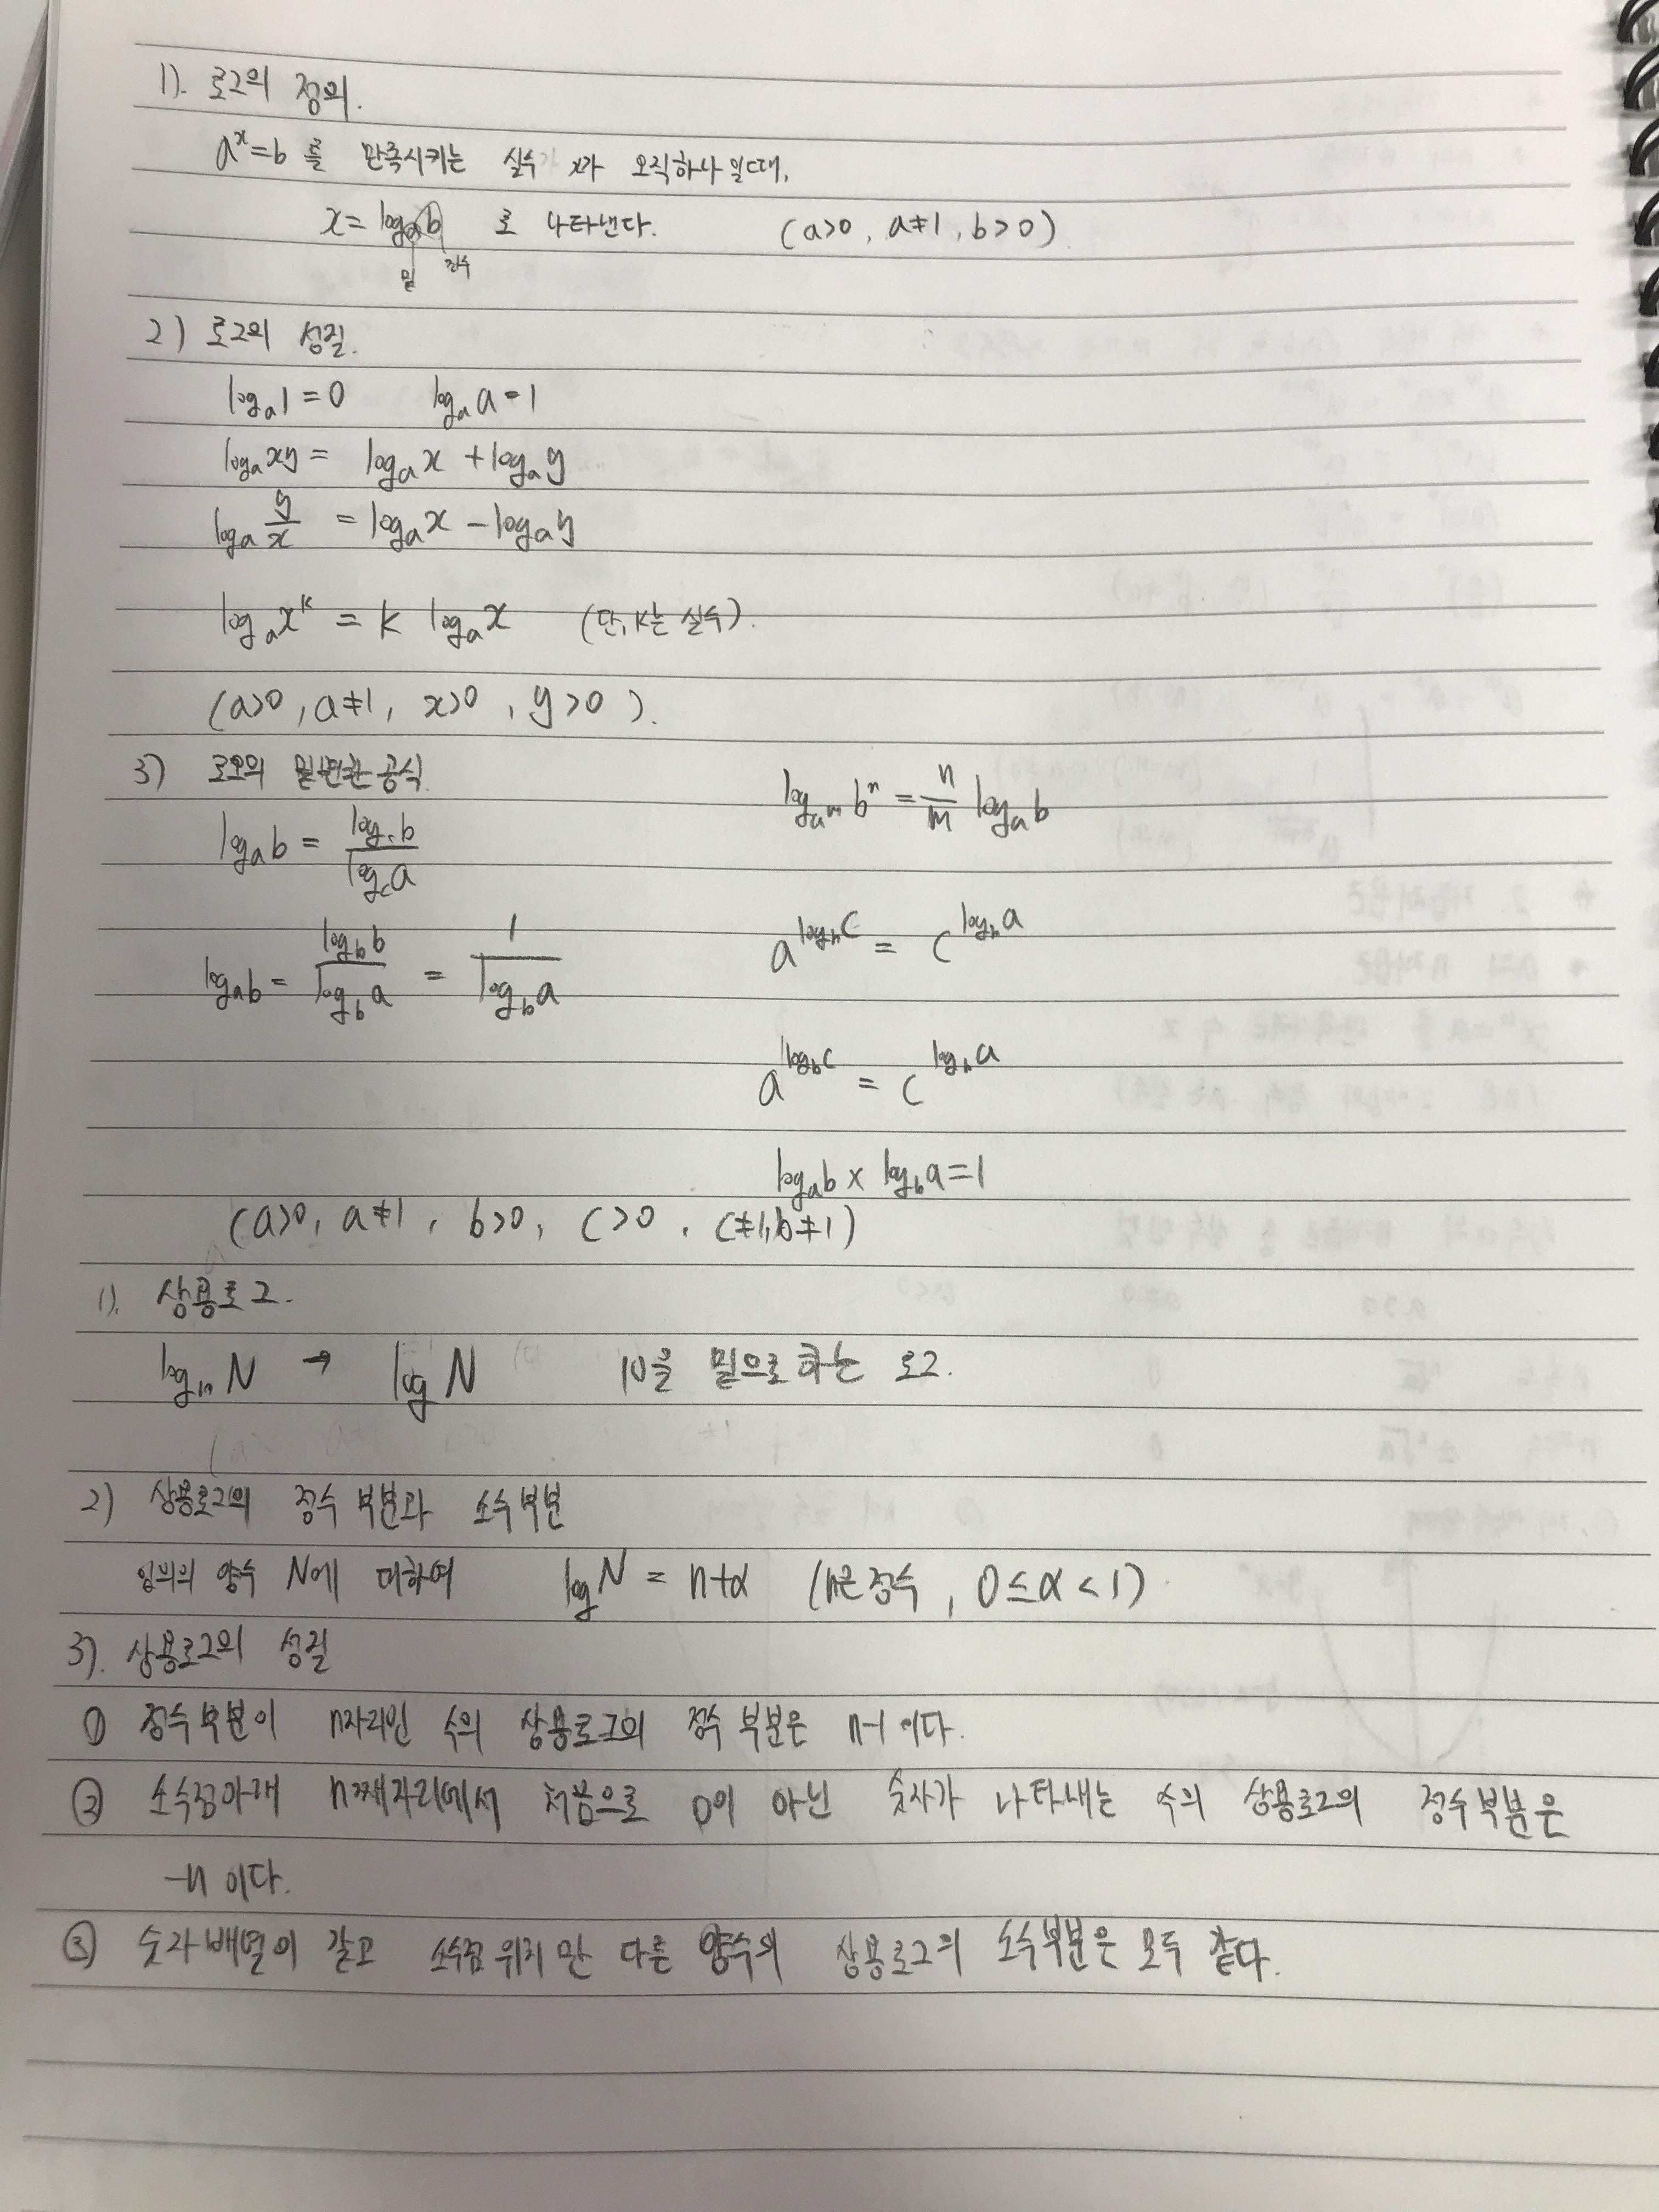 1). 로그의 정의.
aˣ=b 를 만족시키는 실수 x가 오직하나 일때,
x = logₐb 로 나타낸다. (a>0, a≠1, b>0)
밑 진수
2) 로그의 성질.
logₐ1=0 logₐa=1
logₐxy = logₐx + logₐy
logₐ y/x = logₐx - logₐy
logₐxᵏ = k logₐx (단, k는 실수).
(a>0, a≠1, x>0, y>0).
3) 로오의 밑변환 공식.
logₐb = log_c b / log_c a
logₐb = log_b b / log_b a = 1 / log_b a
log_{a^m} bⁿ = n/m logₐb
a^{log_b c} = c^{log_b a}
a^{log_b c} = c^{log_b a}
logₐb × log_b a = 1
(a>0, a≠1, b>0, c>0, c≠1, b≠1)
1). 상용로그.
log₁₀N → log N 10을 밑으로 하는 로그.
2) 상용로그의 정수 부분과 소수부분
임의의 양수 N에 대하여 log N = n+α (n은 정수, 0≤α<1)
3). 상용로그의 성질
① 정수부분이 n자리인 수의 상용로그의 정수 부분은 n-1 이다.
② 소수점아래 n째자리에서 처음으로 0이 아닌 숫자가 나타내는 수의 상용로그의 정수부분은
-n 이다.
③ 숫자배열이 같고 소수점 위치만 다른 양수의 상용로그의 소수부분은 모두 같다.